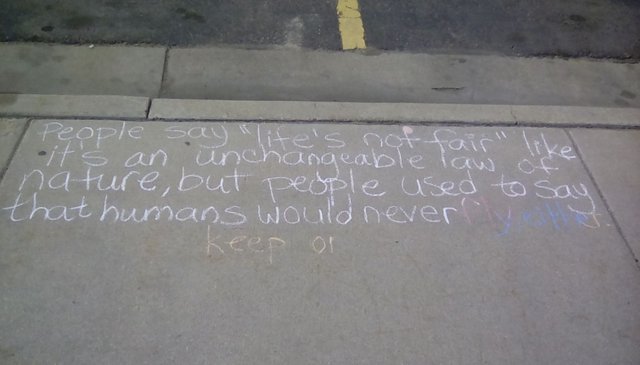 People say "life's not fair" like
it's an unchangeable law of
nature, but people used to say
that humans would never fly, either.
keep on